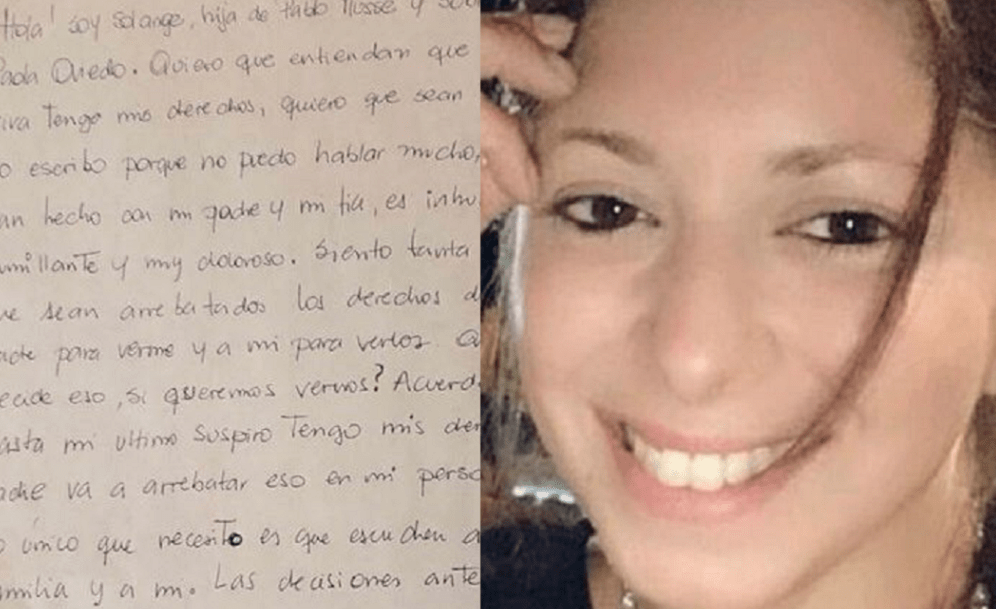 Hola! Soy Solange, hija de Pablo Musse y
Paola Oviedo. Quiero que entiendan que
iva Tengo mis derechos, quiero que sean
o escribo porque no puedo hablar mucho,
an hecho con mi padre y mi tia, es inhu
millante y muy doloroso. Siento tanta
ue sean arrebatados los derechos d
adre para verme y a mi para verlos. Q
ecide eso, si queremos vernos? Acuerd
asta mi ultimo suspiro Tengo mis der
adie va a arrebatar eso en mi perso
o único que necesito es que escuchen a
amilia y a mi. Las decisiones ante